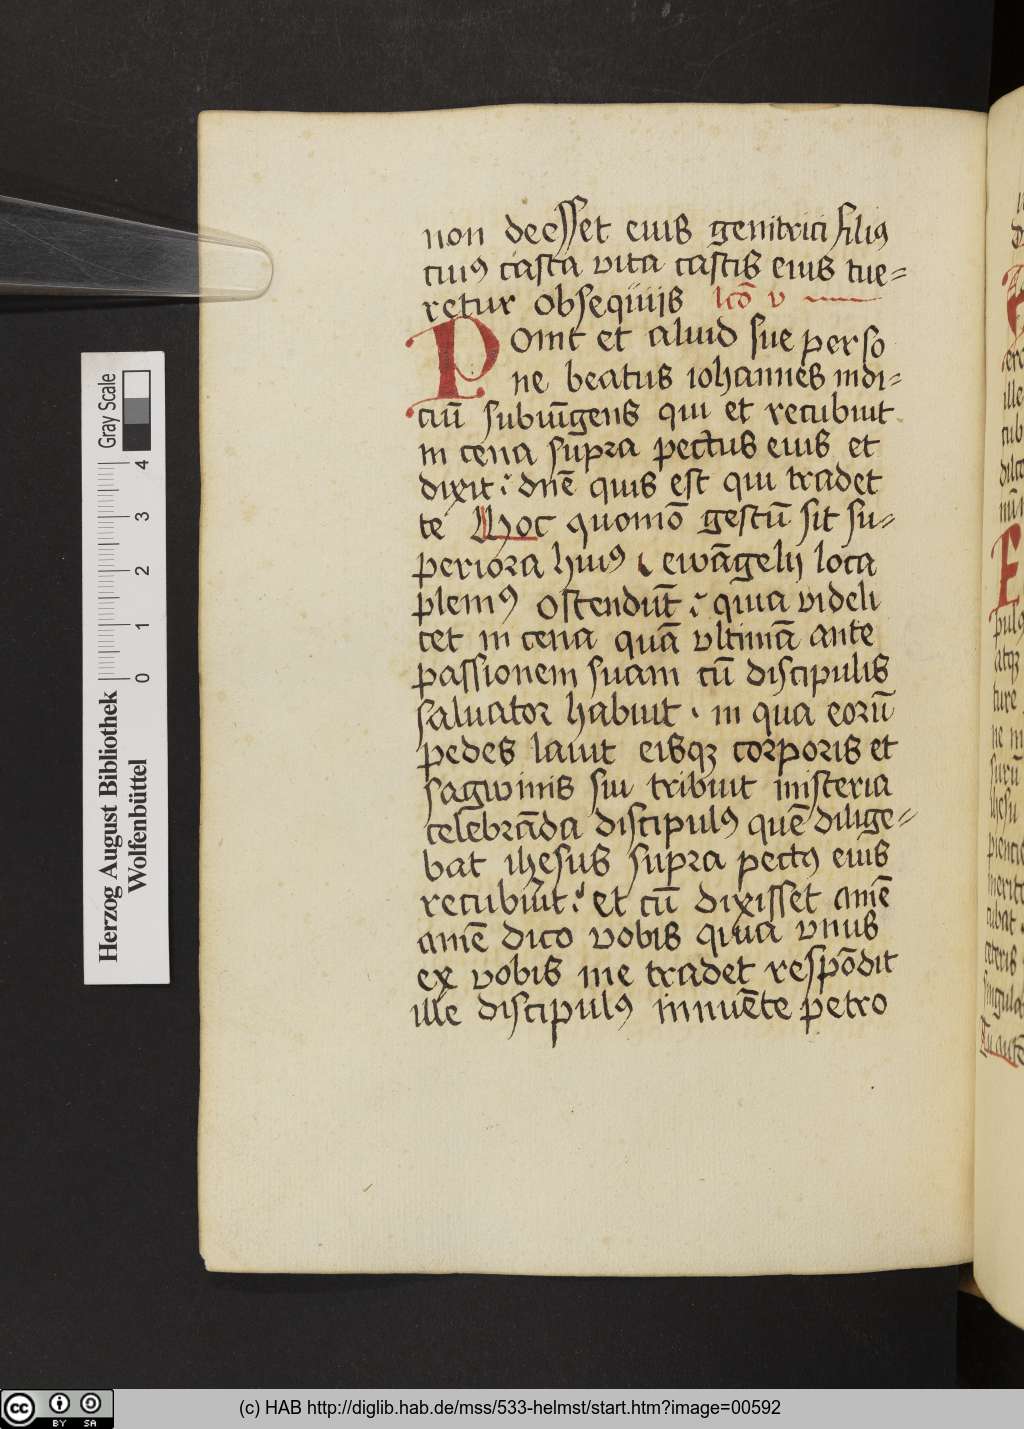 non deesset eius genitrici filiꝰ
cuiꝰ casta vita castis eius tue=
retur obsequiijs lcō v
Ponit et aliud sue perso
ne beatus iohannes indi=
ciū subiūgens qui et recubuit
in cena supra pectus eius et
dixit : dnē quis est qui tradet
te Hoc quomō gestū sit su=
periora huiꝰ ewāgelij loca
pleniꝰ ostendūt : quia videli
cet in cena quā vltimā ante
passionem suam cū discipulis
saluator habuit · in qua eorū
pedes lauit eisqꝫ corporis et
sagwinis sui tribuit misteria
celebrāda discipulꝰ quē dilige=
bat ihesus supra pectꝰ eius
recubuit : et cū dixisset amē
amē dico vobis quia vnus
ex vobis me tradet respōdit
ille discipulꝰ innuēte petro
Gray Scale
0 1 2 3 4
Herzog August Bibliothek
Wolfenbüttel
cc BY SA
(c) HAB http://diglib.hab.de/mss/533-helmst/start.htm?image=00592